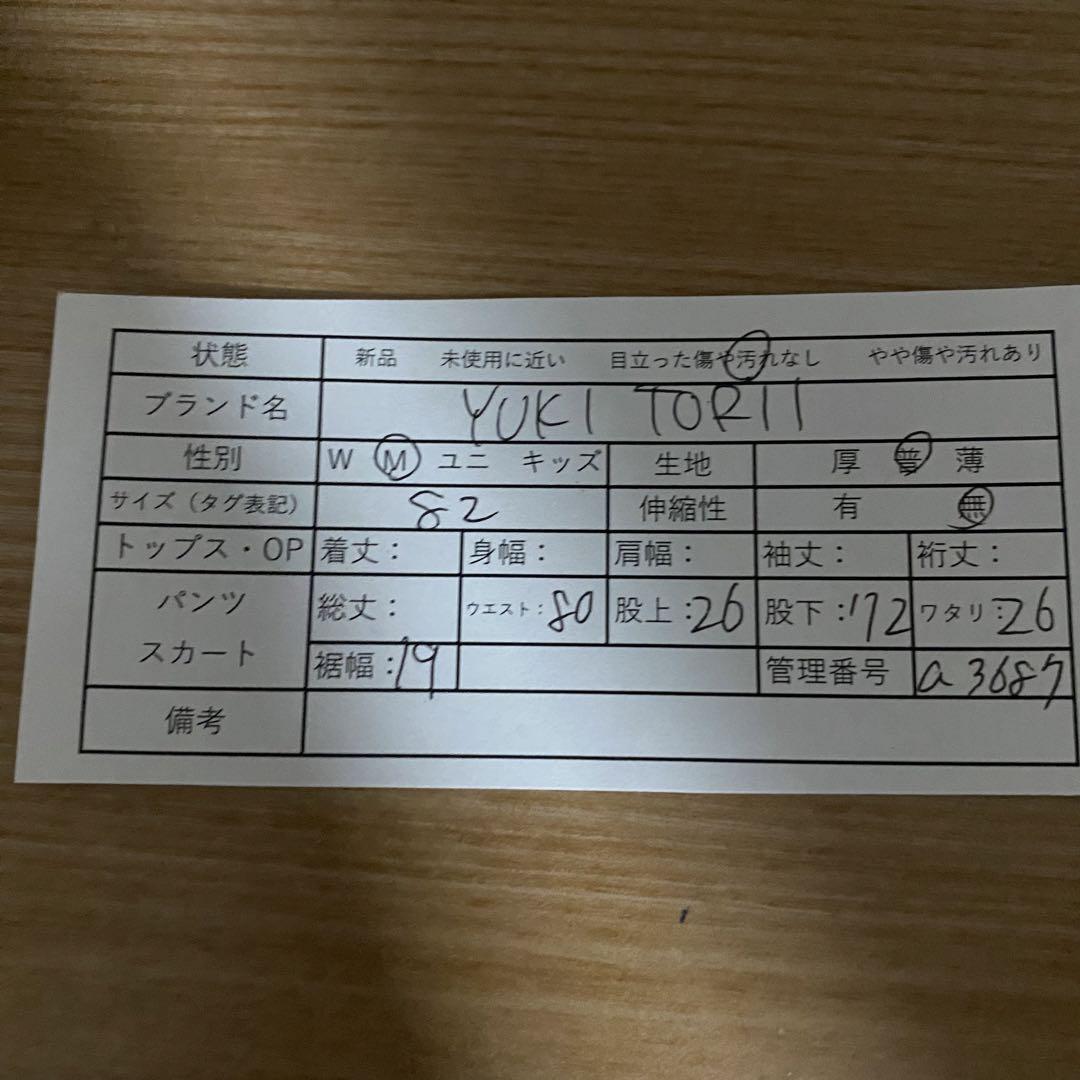 状態 新品 未使用に近い 目立った傷や汚れなし やや傷や汚れあり
ブランド名 YUKI TORII
性別 W M ユニ キッズ 生地 厚 普 薄
サイズ（タグ表記） 82 伸縮性 有 無
トップス・OP 着丈： 身幅： 肩幅： 袖丈： 裄丈：
パンツ スカート 総丈： ウエスト：80 股上：26 股下：72 ワタリ：26
裾幅：19 管理番号 a3687
備考